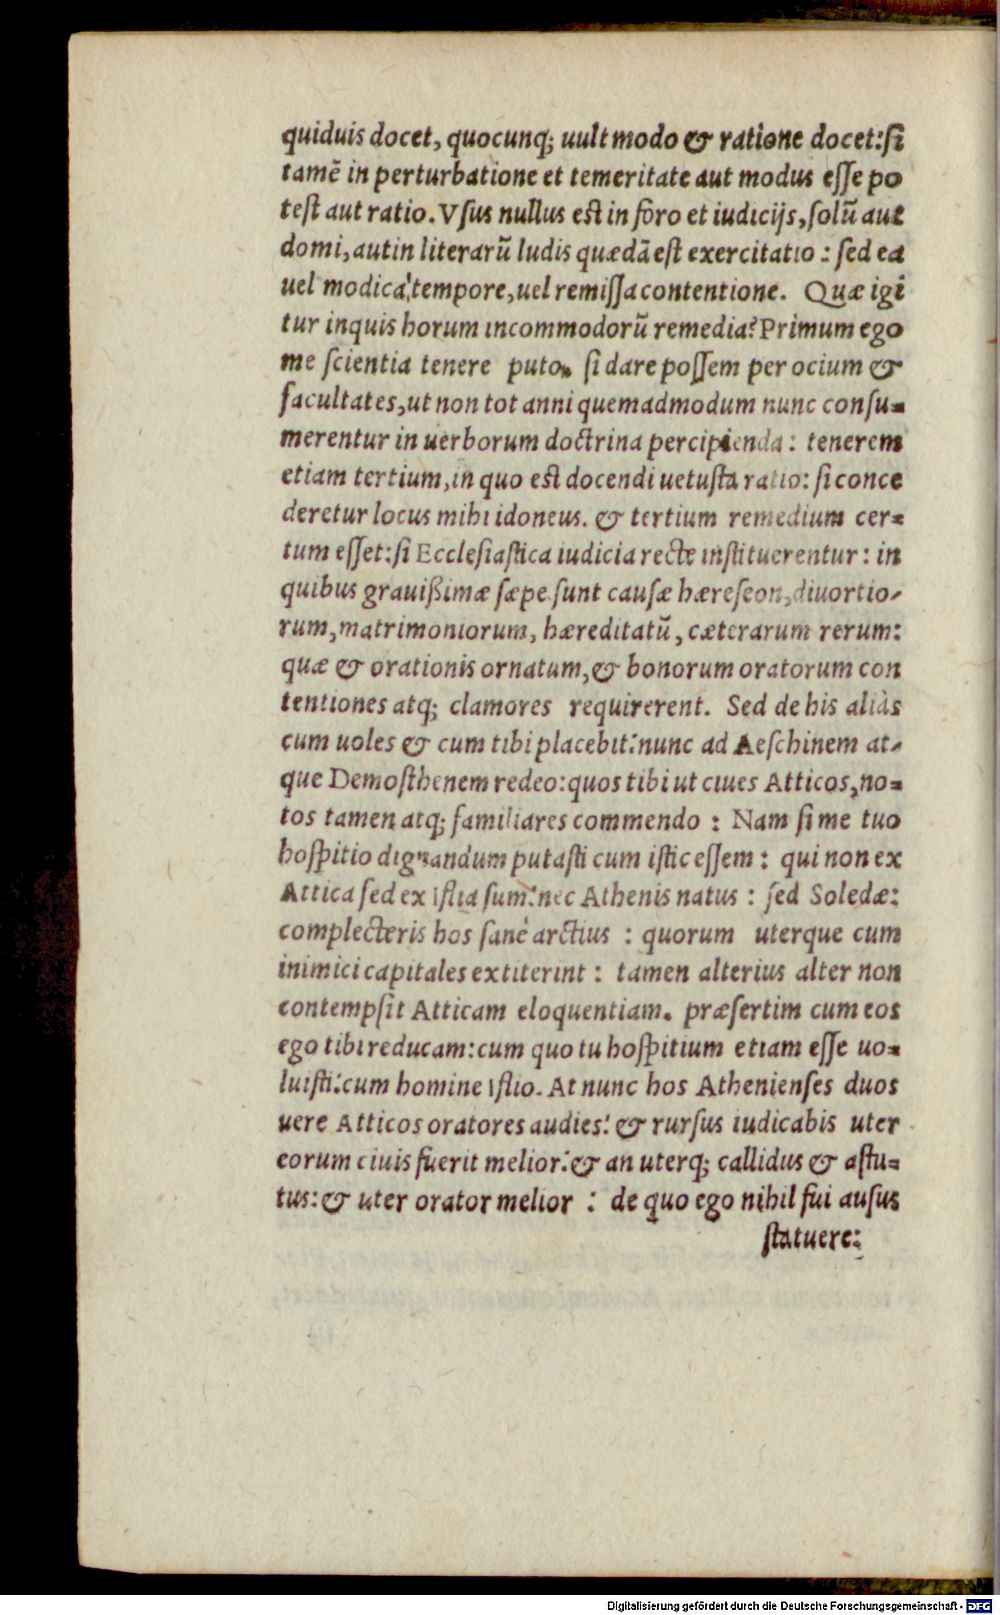 quiduis docet, quocunq; uult modo & ratione docet: ſi
tamẽ in perturbatione et temeritate aut modus eſſe po
teſt aut ratio. Vſus nullus eſt in foro et iudicijs, ſolũ aut
domi, aut in literarũ ludis quædã eſt exercitatio : ſed ea
uel modico tempore, uel remiſſa contentione. Quæ igi
tur inquis horum incommodorũ remedia? Primum ego
me ſcientia tenere puto. ſi dare poſſem per ocium &
facultates, ut non tot anni quemadmodum nunc conſu-
merentur in uerborum doctrina percipienda : tenerem
etiam tertium, in quo eſt docendi uetuſta ratio: ſi conce
deretur locus mihi idoneus. & tertium remedium cer-
tum eſſet: ſi Eccleſiaſtica iudicia recte inſtituerentur : in
quibus grauißimæ ſæpe ſunt cauſæ hæreſeon, diuortio-
rum, matrimoniorum, hæreditatũ, cæterarum rerum:
quæ & orationis ornatum, & bonorum oratorum con
tentiones atq; clamores requirerent. Sed de his aliàs
cum uoles & cum tibi placebit: nunc ad Aeſchinem at-
que Demoſthenem redeo: quos tibi ut ciues Atticos, no-
tos tamen atq; familiares commendo : Nam ſi me tuo
hoſpitio dignandum putaſti cum iſtic eſſem : qui non ex
Attica ſed ex Iſlia ſum: nec Athenis natus : ſed Soledæ:
complecteris hos ſanè arctius : quorum uterque cum
inimici capitales extiterint : tamen alterius alter non
contempſit Atticam eloquentiam. præſertim cum eos
ego tibi reducam: cum quo tu hoſpitium etiam eſſe uo-
luiſti: cum homine Iſlio. At nunc hos Athenienſes duos
uere Atticos oratores audies: & rurſus iudicabis uter
eorum ciuis fuerit melior: & an uterq; callidus & aſtu-
tus: & uter orator melior : de quo ego nihil fui auſus
ſtatuere:
Digitalisierung gefördert durch die Deutsche Forschungsgemeinschaft - DFG